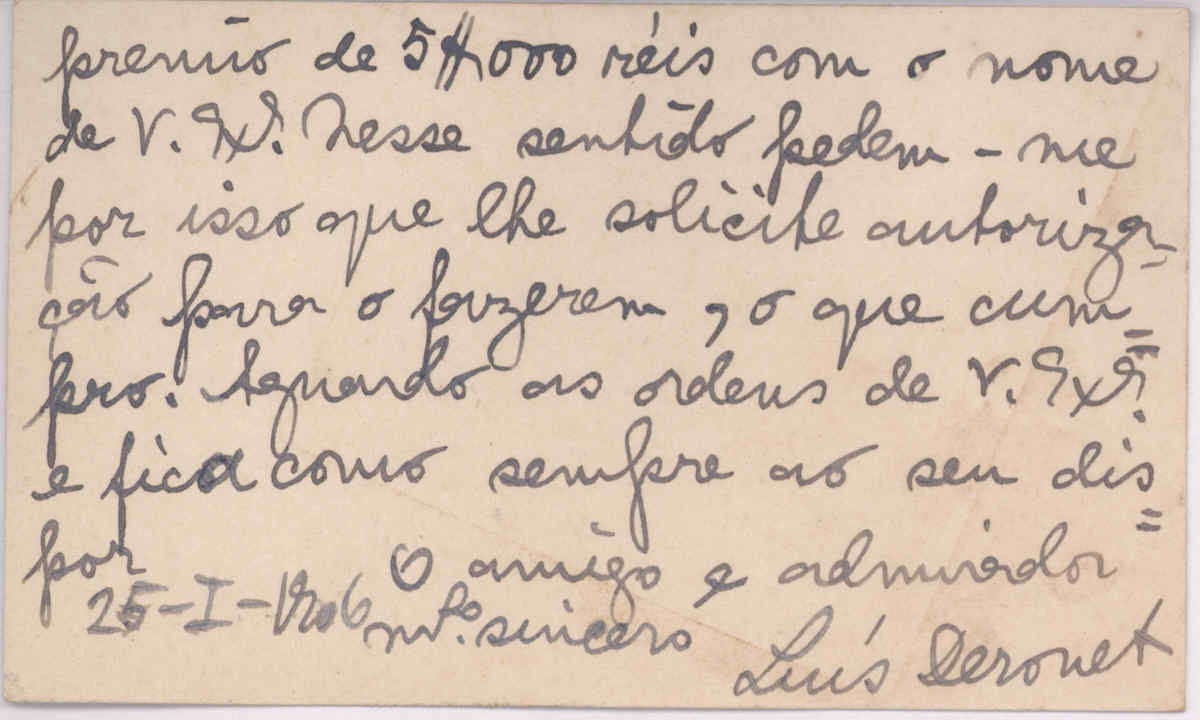 premio de 5$000 réis com o nome
de V. Exª. Nesse sentido pedem-me
por isso que lhe solicite autoriza-
ção para o fazerem, o que cum=
pro. Aguardo as ordens de V. Exª.
e fica como sempre ao seu dis=
por O amigo e admirador
25-I-1906 mtº. sincero
Luís Derouet